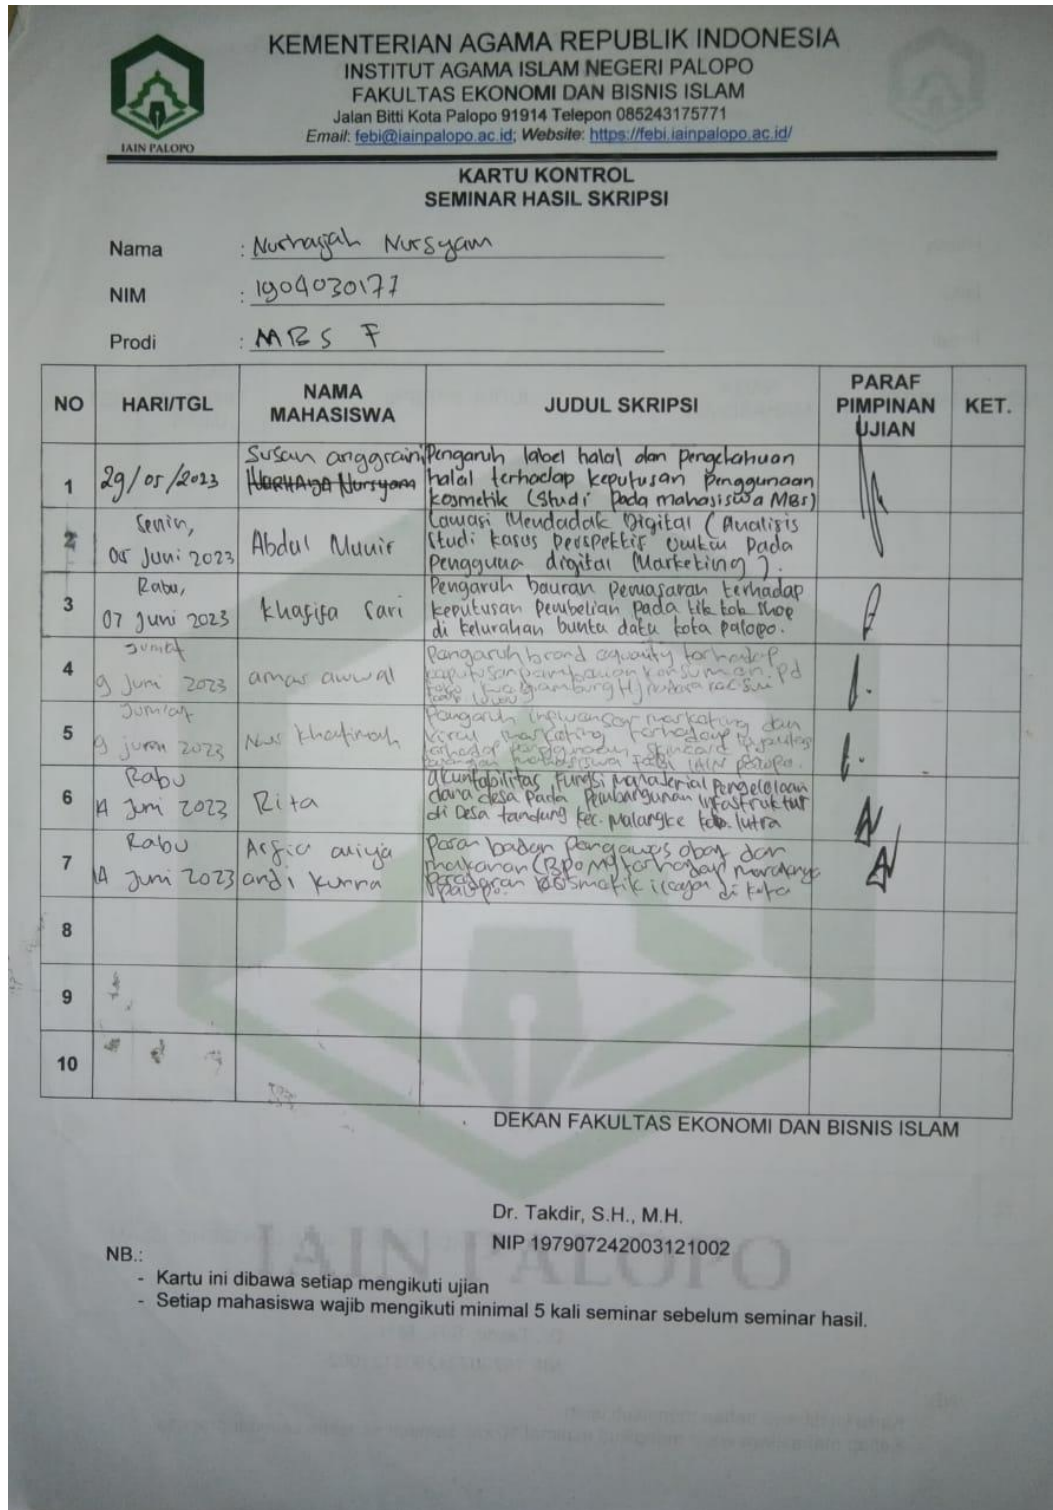 KEMENTERIAN AGAMA REPUBLIK INDONESIA
INSTITUT AGAMA ISLAM NEGERI PALOPO
FAKULTAS EKONOMI DAN BISNIS ISLAM
Jalan Bitti Kota Palopo 91914 Telepon 085243175771
Email: febi@iainpalopo.ac.id; Website: https://febi.iainpalopo.ac.id/
IAIN PALOPO
KARTU KONTROL
SEMINAR HASIL SKRIPSI
Nama : Nurhajjah Nursyam
NIM : 1904030177
Prodi : MBS F
NO HARI/TGL NAMA MAHASISWA JUDUL SKRIPSI PARAF PIMPINAN UJIAN KET.
1 29/05/2023 Susan anggraini
Pengaruh label halal dan pengetahuan
halal terhadap keputusan penggunaan
kosmetik (Studi pada mahasiswa MBS)
2 Senin,
05 Juni 2023 Abdul Munir
Mendadak Digital (Analisis
Studi kasus perspektif umkm pada
Pengguna digital Marketing).
3 Rabu,
07 Juni 2023 Khafifa Sari
Pengaruh bauran pemasaran terhadap
keputusan pembelian pada tik tok shop
di kelurahan buntu datu kota palopo.
4 Jumat
9 Juni 2023 amar awwal
Pengaruh brand equity terhadap
keputusan konsumen pd
5 Jumat
9 Juni 2023 Nur Khatimah
Pengaruh marketing dan
viral marketing terhadap
penggunaan skincare
mahasiswa Febi IAIN palopo.
6 Rabu
14 Juni 2023 Rita
akuntabilitas Fungsi Manajerial Pengelolaan
dana desa pada Pembangunan Infastruktur
di Desa tandung kec. Malangke kab. lutra
7 Rabu
14 Juni 2023 andi
Peran badan pengawas obat dan
makanan (BPOM) terhadap maraknya
peredaran kosmetik ilegal di kota
palopo
8
9
10
DEKAN FAKULTAS EKONOMI DAN BISNIS ISLAM
Dr. Takdir, S.H., M.H.
NIP 197907242003121002
IAIN PALOPO
NB.:
- Kartu ini dibawa setiap mengikuti ujian
- Setiap mahasiswa wajib mengikuti minimal 5 kali seminar sebelum seminar hasil.